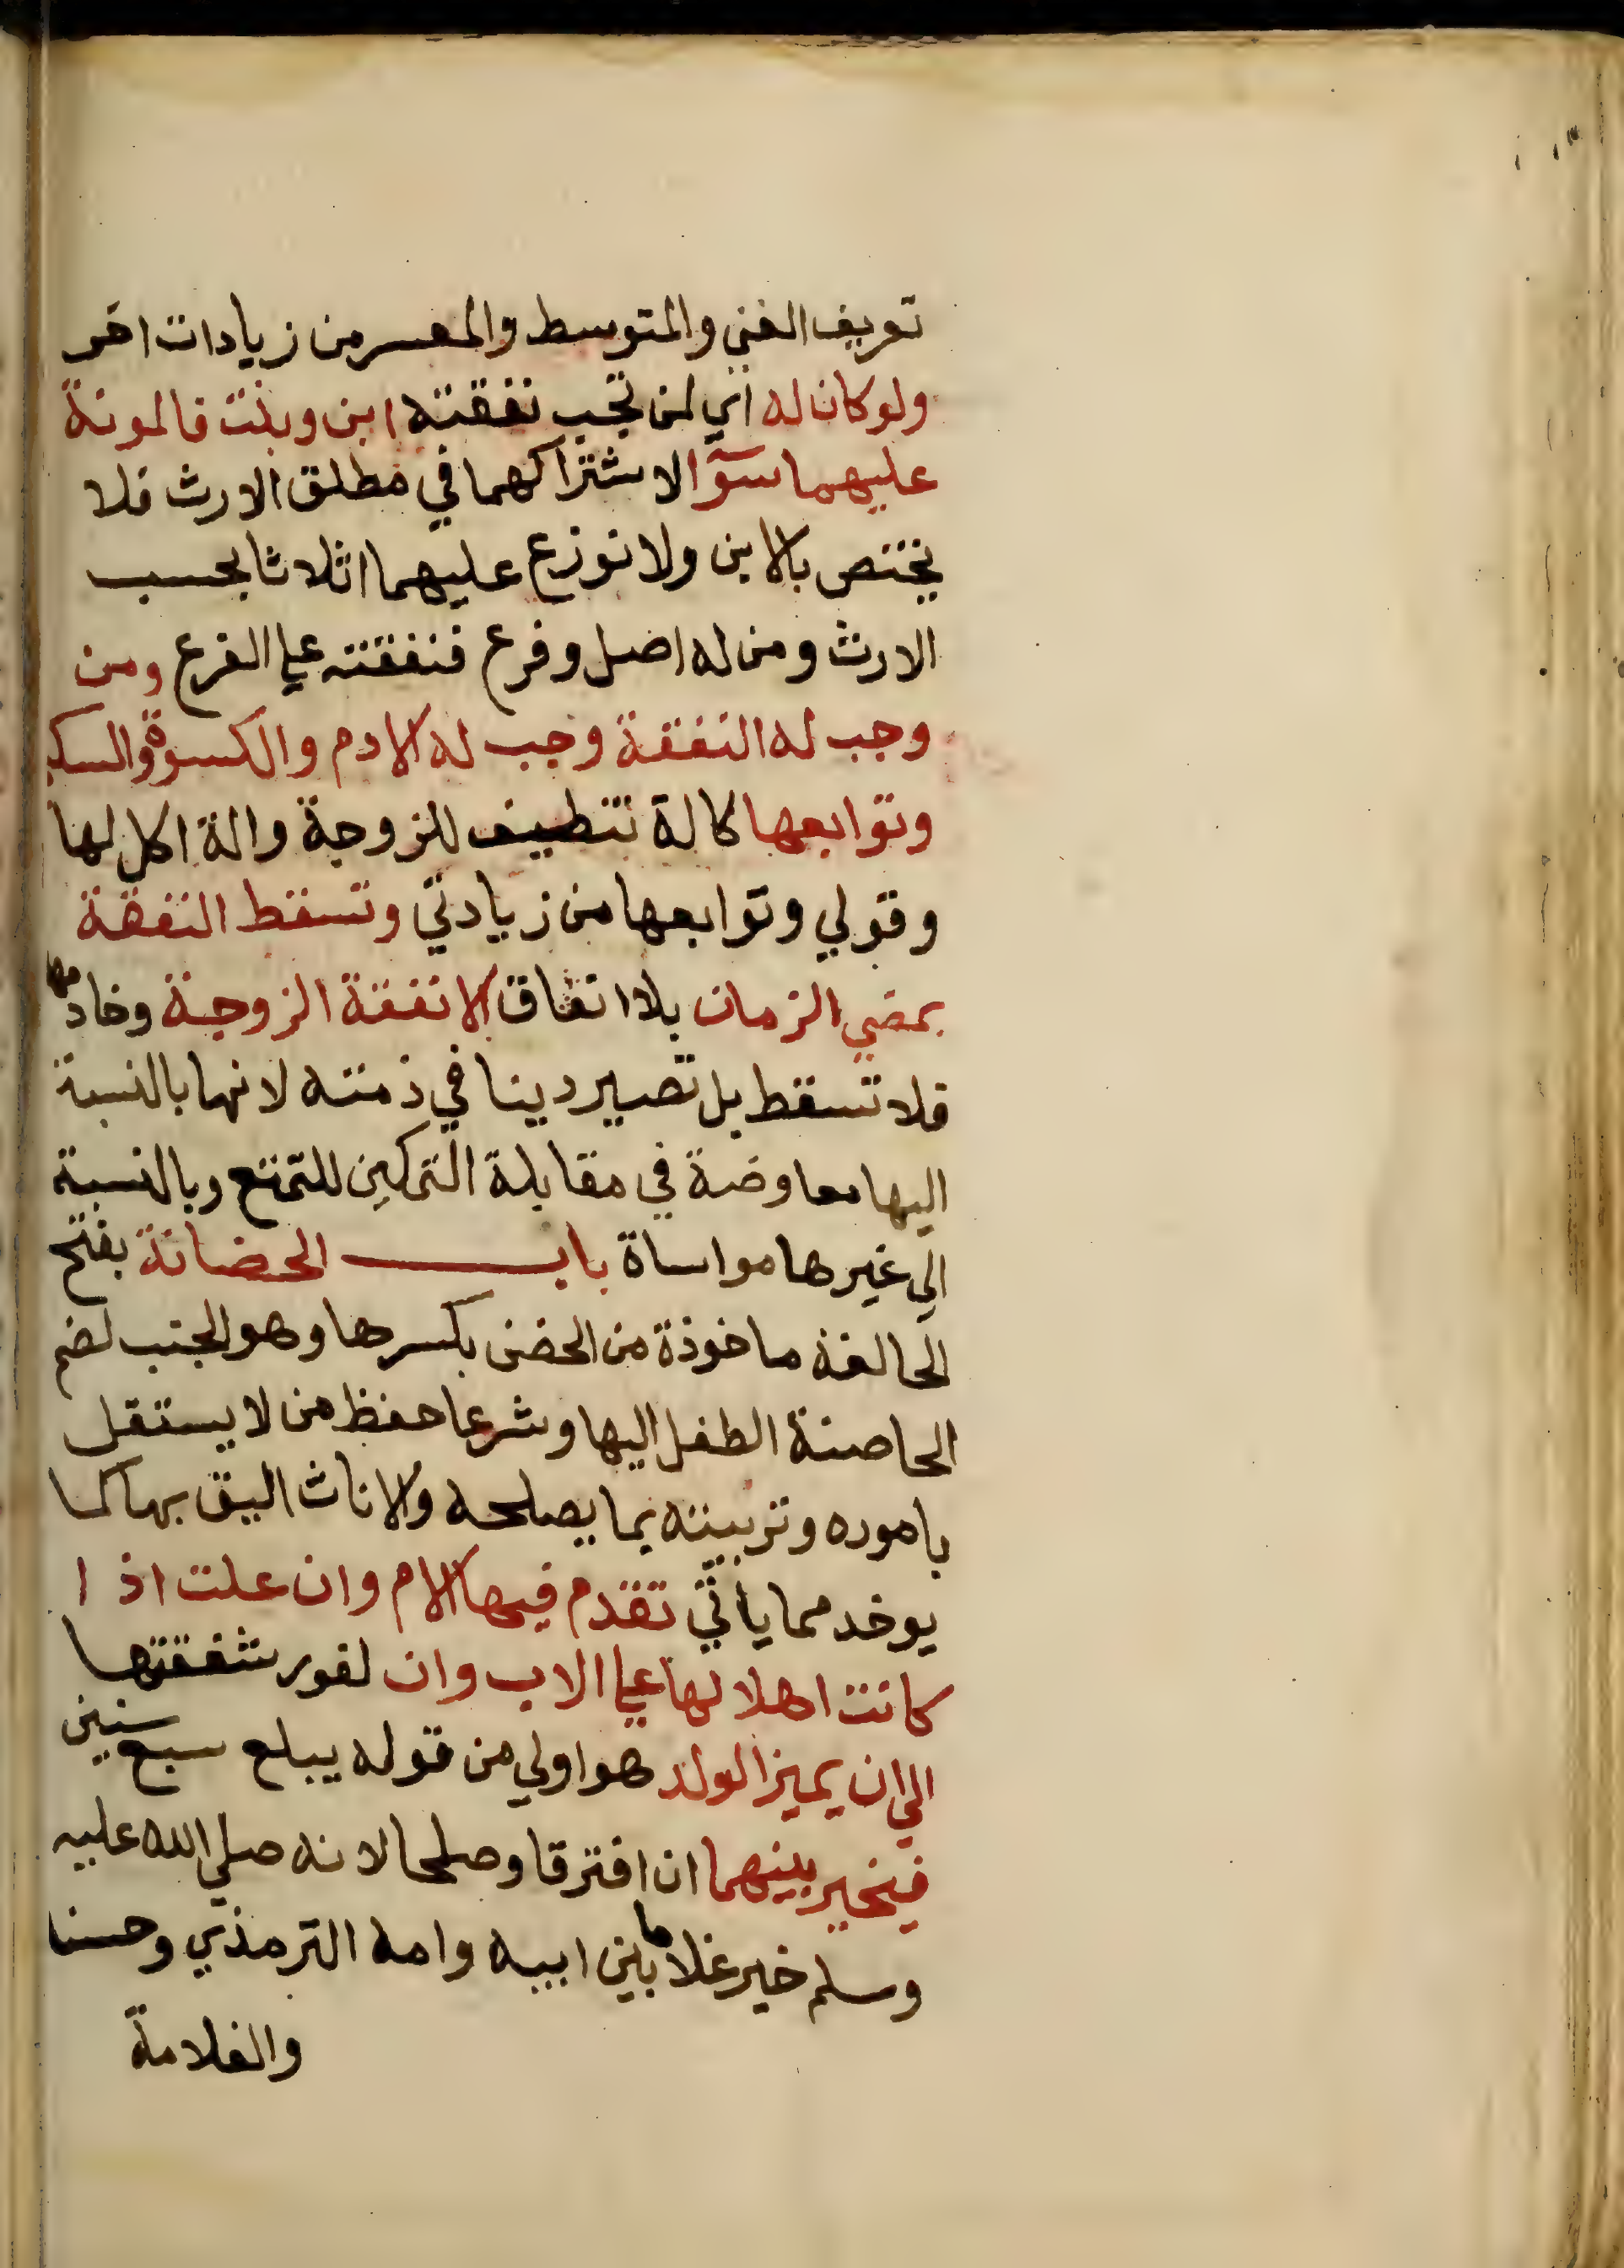 تعريف الغني والمتوسط والمعسر من زيادات اخر
ولو كان له اي لمن تجب نفقته ابن وبنت فالمونة
عليهما سوآ لاشتراكهما في مطلق الارث فلا
يختص بالابن ولا توزع عليهما اثلاثا بحسب
الارث ومن له اصل وفرع فنفقته علي الفرع ومن
وجب له النفقة وجب له الادم والكسوة والسكني
وتوابعها كالة تنظيف للزوجة والة اكل لها
وقولي وتوابعها من زيادتي وتسقط النفقة
بمضي الزمان بلا انفاق الا نفقة الزوجة وخادمها
فلا تسقط بل تصير دينا في ذمته لانها بالنسبة
اليها معاوضة في مقابلة التمكين للتمتع وبالنسبة
الي غيرها مواساة باب الحضانة بفتح
الحا لغة ماخوذة من الحضن بكسرها وهو الجنب لضم
الحاضنة الطفل اليها وشرعا حفظ من لا يستقل
باموره وتربيته بما يصلحه والاناث اليق بها كما
يوخد مما ياتي تقدم فيها الام وان علت اذا
كانت اهلا لها علي الاب وان لفور شفقتها
الي ان يميز الولد هو اولي من قوله يبلع سبع سنين
فيخير بينهما ان افترقا وصلحا لانه صلي الله عليه
وسلم خير غلاما بين ابيه وامه الترمذي وحسنا
والغلامة